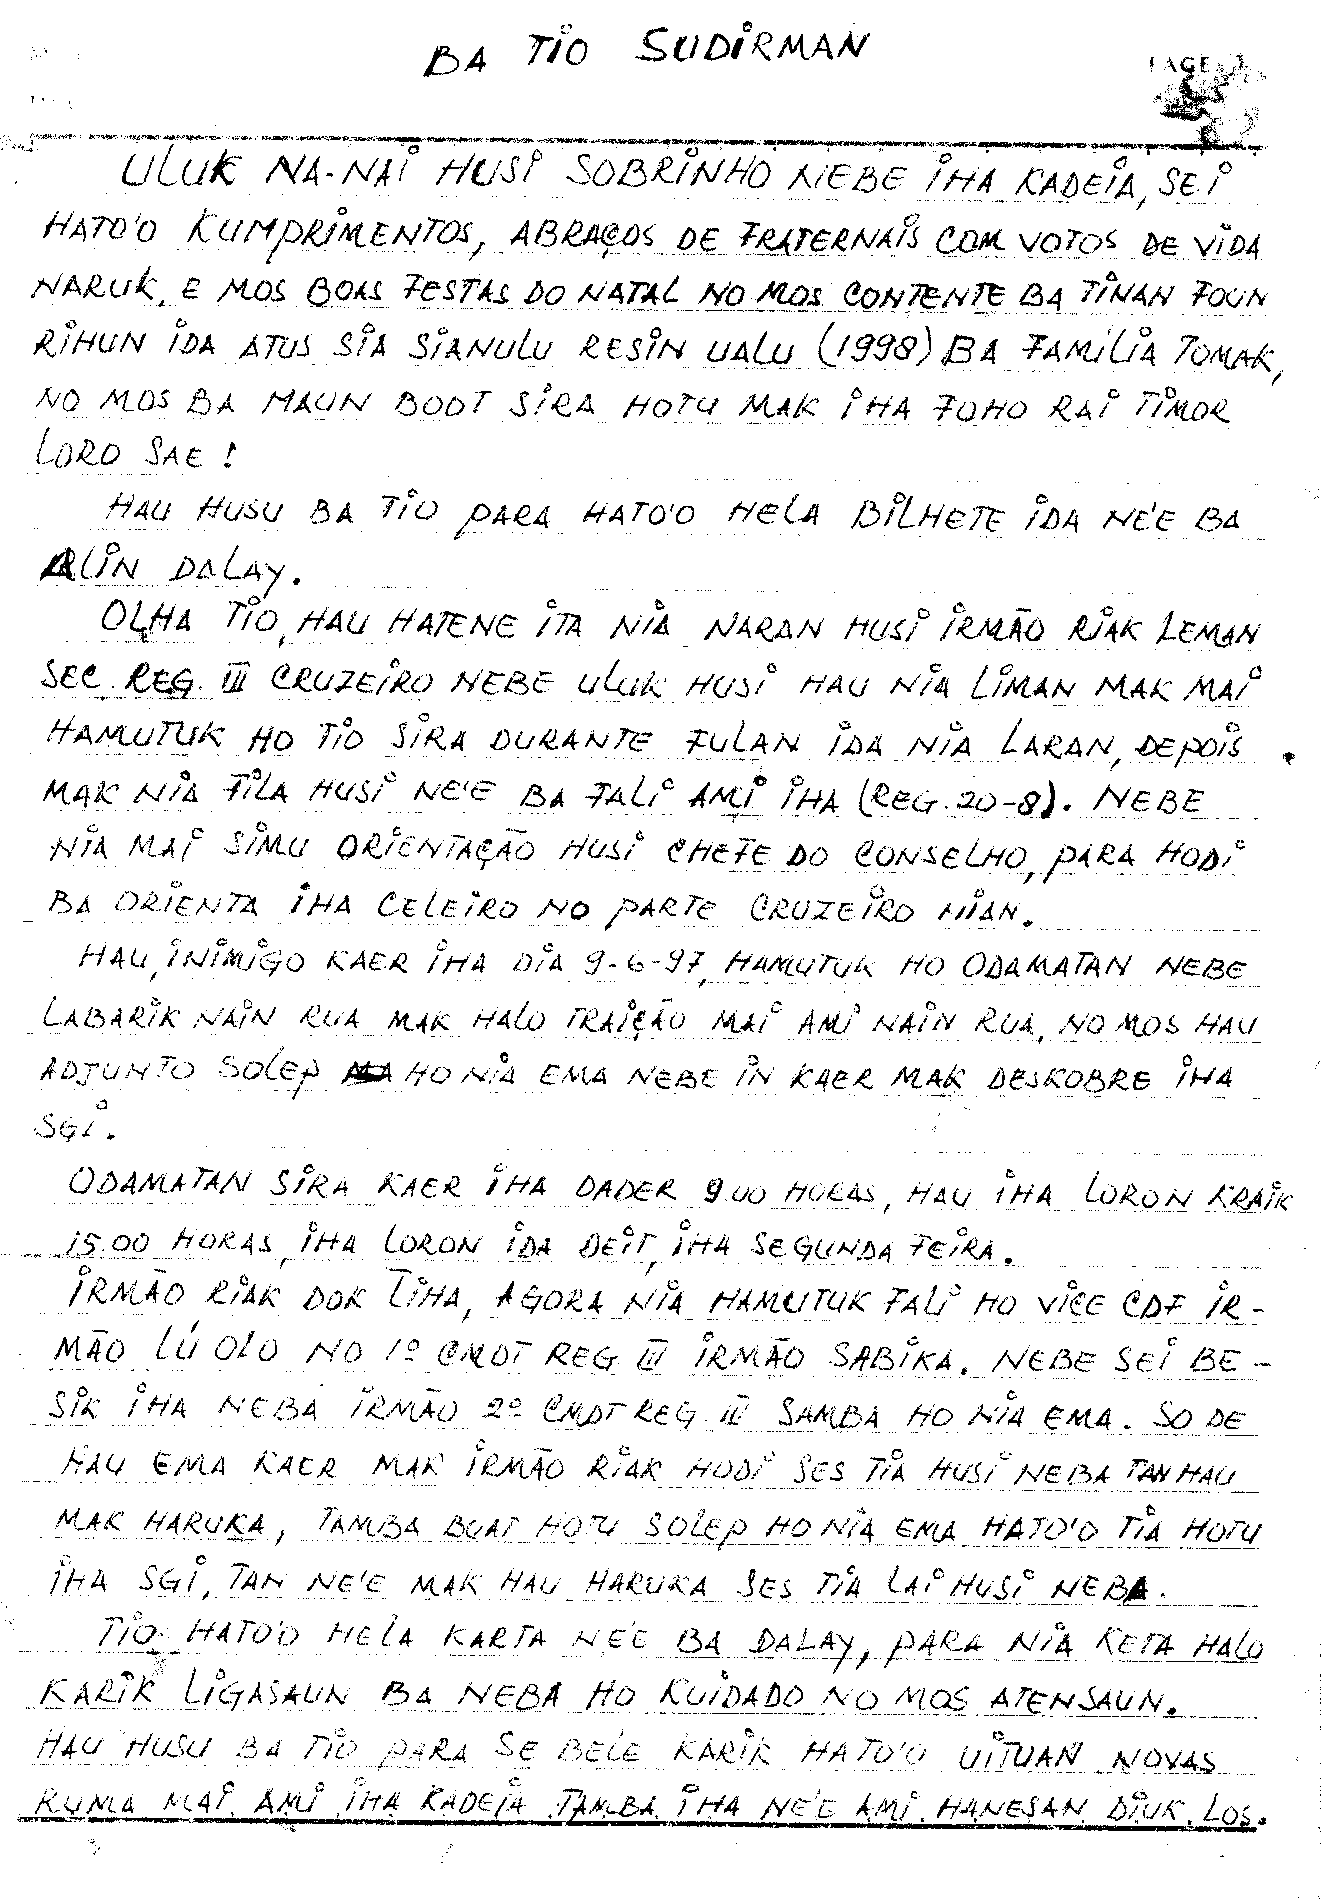 BA TIO SUDIRMAN
PAGE
ULUK NA-NAI HUSI SOBRINHO NEBE IHA KADEIA, SEI
HATO'O KUMPRIMENTOS, ABRAÇOS DE FRATERNAIS COM VOTOS DE VIDA
NARUK, E MOS BOAS FESTAS DO NATAL NO MOS CONTENTE BA TINAN FOUN
RIHUN IDA ATUS SIA SIANULU RESIN UALU (1998) BA FAMILIA TOMAK,
NO MOS BA MAUN BOOT SIRA HOTU MAK IHA FOHO RAI TIMOR
LORO SAE !
HAU HUSU BA TIO PARA HATO'O HELA BILHETE IDA NE'E BA
ALIN DALAY.
OLHA TIO, HAU HATENE ITA NIA NARAN HUSI IRMÃO RIAK LEMAN
SEC. REG. III CRUZEIRO NEBE ULUK HUSI HAU NIA LIMAN MAK MAI
HAMUTUK HO TIO SIRA DURANTE FULAN IDA NIA LARAN, DEPOIS
MAK NIA FILA HUSI NE'E BA FALI AMI IHA (REG. 20-8). NEBE
NIA MAI SIMU ORIENTAÇÃO HUSI CHEFE DO CONSELHO, PARA HODI
BA ORIENTA IHA CELEIRO NO PARTE CRUZEIRO NIAN.
HAU, INIMIGO KAER IHA DIA 9-6-97, HAMUTUK HO ODAMATAN NEBE
LABARIK NAIN RUA MAK HALO TRAIÇÃO MAI AMI NAIN RUA, NO MOS HAU
ADJUNTO SOLEP HO NIA EMA NEBE IN KAER MAK DESKOBRE IHA
SGI.
ODAMATAN SIRA KAER IHA DADER 9.00 HORAS, HAU IHA LORON KRAIK
15.00 HORAS, IHA LORON IDA DEIT, IHA SEGUNDA FEIRA.
IRMÃO RIAK DOK LIHA, AGORA NIA HAMUTUK FALI HO VICE CDF IR-
MÃO LÚ OLO NO 1º CMDT REG III IRMÃO SABIKA. NEBE SEI BE-
SIK IHA NEBA IRMÃO 2º CMDT REG. III SAMBA HO NIA EMA. SO DE
HAU EMA KAER MAK IRMÃO RIAK HODI SES TIA HUSI NEBA TAN HAU
MAK HARUKA, TAMBA BUAT HOTU SOLEP HO NIA EMA HATO'O TIA HOTU
IHA SGI, TAN NE'E MAK HAU HARUKA SES TIA LAI HUSI NEBA.
TIO HATO'O HELA KARTA NE'E BA DALAY, PARA NIA KETA HALO
KARIK LIGASAUN BA NEBA HO KUIDADO NO MOS ATENSAUN.
HAU HUSU BA TIO PARA SE BELE KARIK HATO'O UITUAN NOVAS
RUMA MAI AMI IHA KADEIA TAMBA IHA NE'E AMI HANESAN DIUK LOS.